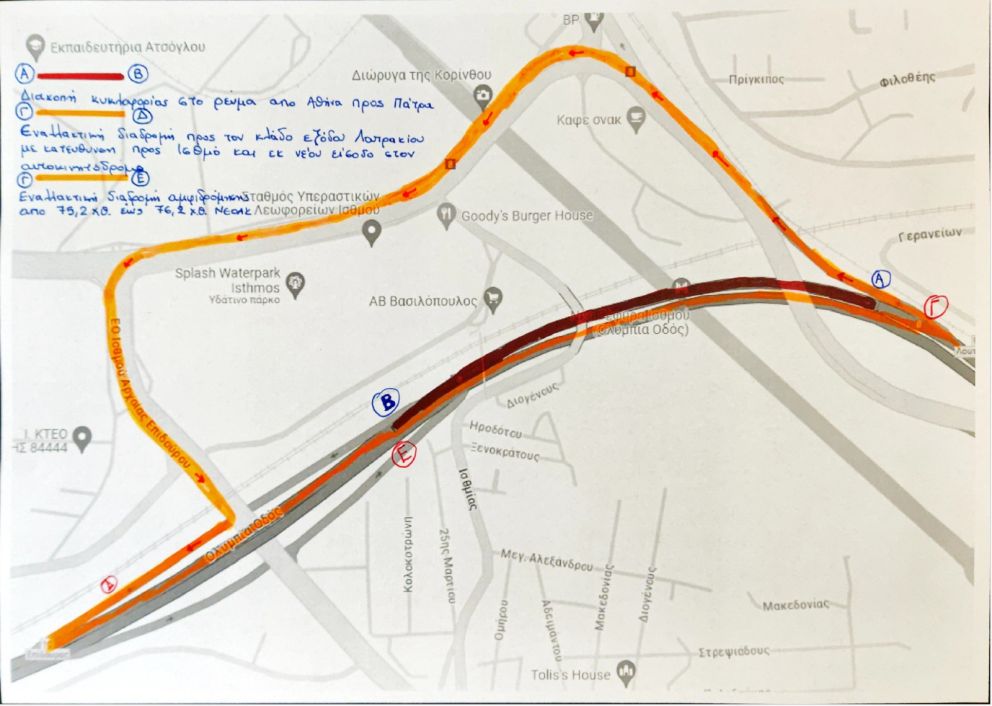 BP
Εκπαιδευτήρια Ατσόγλου
Α Β
Διακοπή κυκλοφορίας στο ρεύμα απο Αθήνα προς Πάτρα
Γ Δ
Εναλλακτική διαδρομή προς τον κλάδο εξόδου Λουτρακίου
με κατεύθυνση προς Ισθμό και εκ νέου είσοδο στον
αυτοκινητόδρομο
Γ Ε
Εναλλακτική διαδρομή αμφιδρόμησης
απο 75,2 χθ. έως 76,2 χθ. ΝΕΟΑΚ
Διώρυγα της Κορίνθου
Πρίγκιπος
Φιλοθέης
Καφε σνακ
Σταθμός Υπεραστικών
Λεωφορείων Ισθμού
Goody's Burger House
Γερανείων
Splash Waterpark
Isthmos
Υδάτινο πάρκο
ΑΒ Βασιλόπουλος
Α
Γ
(Ολυμπία Οδός)
ΕΟ Ισθμού Αρχαίας Επιδαύρου
Β
Διογένους
Ι. ΚΤΕΟ
ΗΣ 84444
Ε
Ηροδότου
Ξενοκράτους
Ισθμίας
Ολυμπία Οδός
Κολοκοτρώνη
25ης Μαρτίου
Μεγ. Αλεξάνδρου
Δ
Ομήρου
Αδειμάντου
Μακεδονίας
Διογένους
Μακεδονίας
Στρεψιάδους
Tolis's House